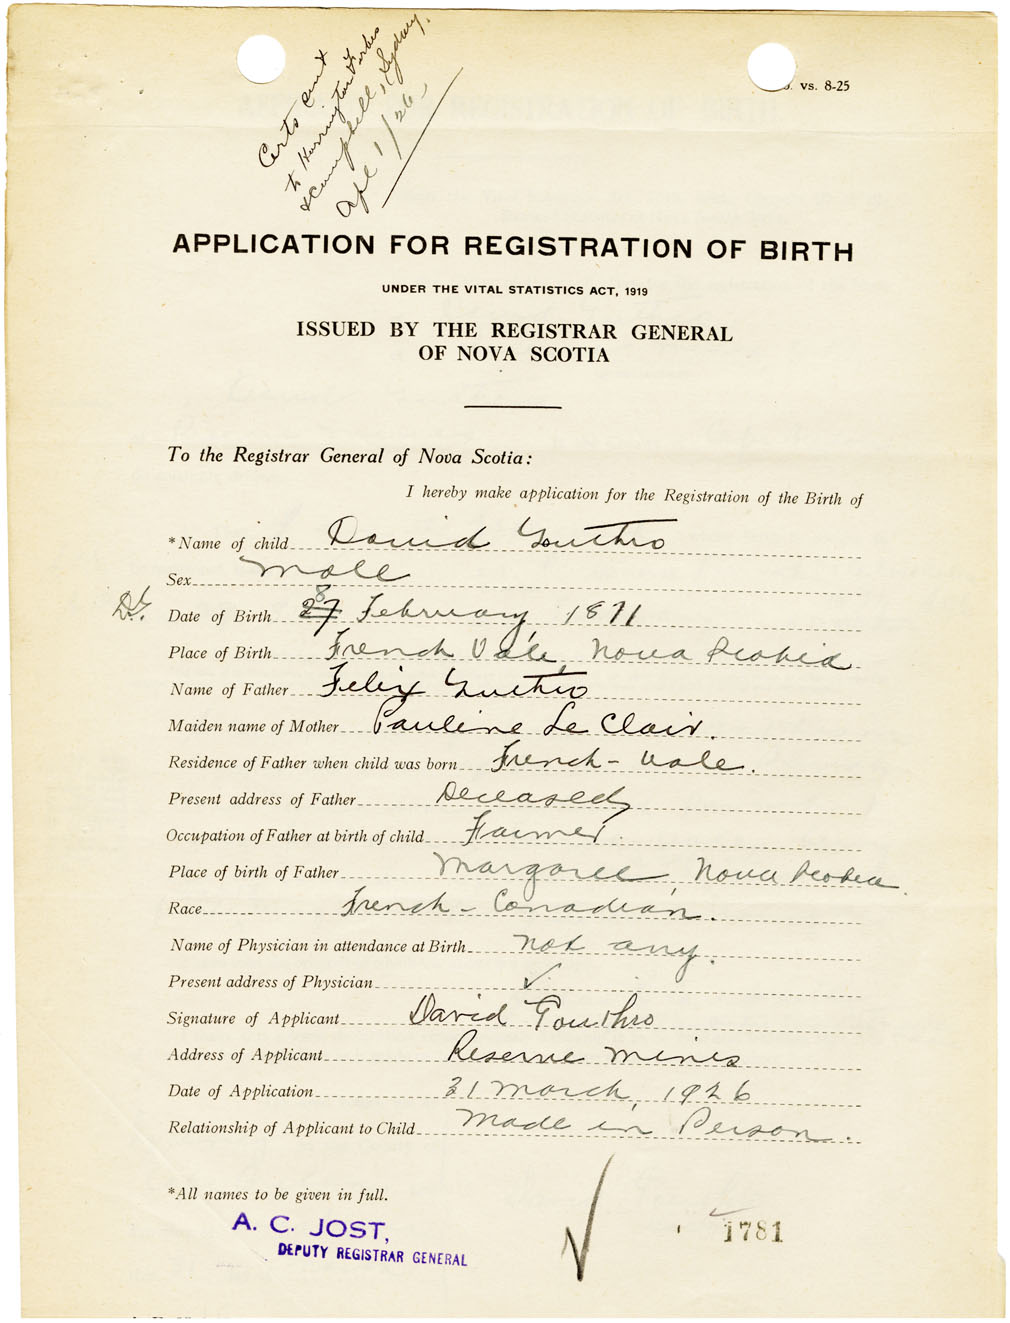 Certs sent
to Harrington Forbes
& Campbell, Sydney.
Apl 1/26
vs. 8-25
APPLICATION FOR REGISTRATION OF BIRTH
UNDER THE VITAL STATISTICS ACT, 1919
ISSUED BY THE REGISTRAR GENERAL
OF NOVA SCOTIA
To the Registrar General of Nova Scotia:
I hereby make application for the Registration of the Birth of
*Name of child David Gouthro
Sex Male
D.G. Date of Birth 28 February, 1871
Place of Birth French Vale, Nova Scotia
Name of Father Felix Gouthro
Maiden name of Mother Pauline Le Clair.
Residence of Father when child was born French - Vale.
Present address of Father Deceased
Occupation of Father at birth of child Farmer.
Place of birth of Father Margaree, Nova Scotia.
Race French - Canadian.
Name of Physician in attendance at Birth not any.
Present address of Physician ✓
Signature of Applicant David Gouthro
Address of Applicant Reserve Mines
Date of Application 31 March, 1926
Relationship of Applicant to Child Made in Person.
*All names to be given in full.
A. C. JOST,
DEPUTY REGISTRAR GENERAL
1781